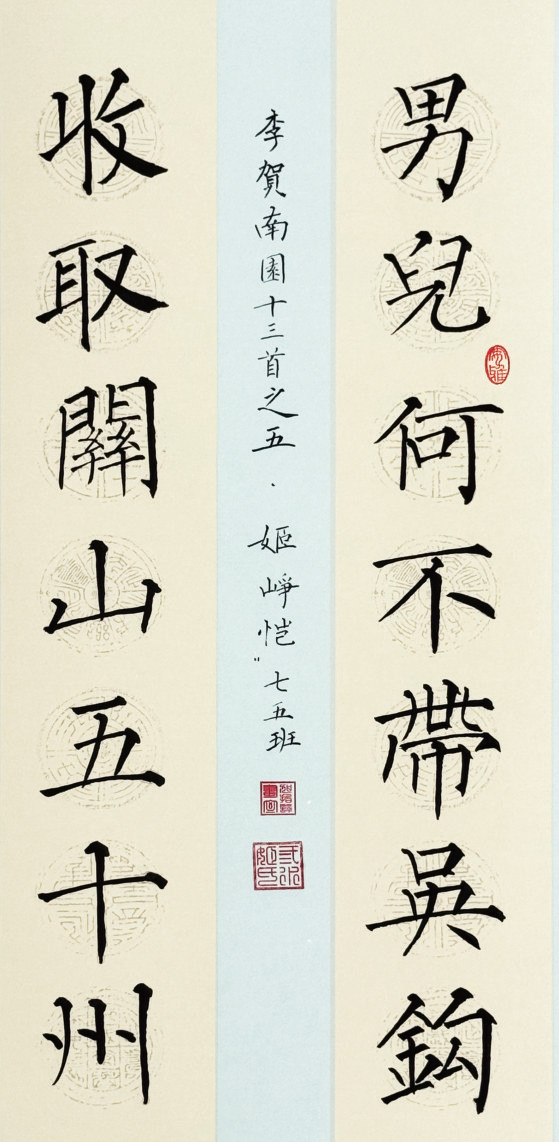 男兒何不帶吳鈎
收取關山五十州
李賀南園十三首之五·姬崢恺〃七五班